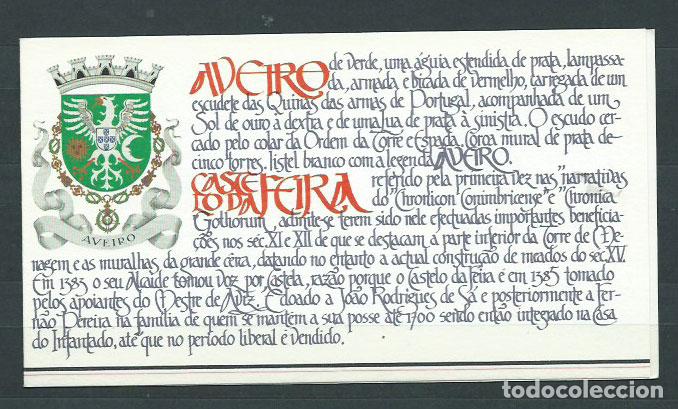 AVEIRO de verde, uma águia estendida de prata, lampassa-
da, armada e bicada de vermelho, carregada de um
escudete das Quinas das armas de Portugal, acompanhada de um
Sol de ouro à dextra e de uma lua de prata à sinistra. O escudo cer-
cado pelo colar da Ordem da Torre e Espada. Coroa mural de prata de
cinco torres, listel branco com a legenda AVEIRO.
CASTE-
LO DA FEIRA referido pela primeira vez nas "narrativas
do "Chronicon Conimbricense" e "Chronica
Gothorum", admite-se terem sido nele efectuadas importantes beneficia-
ções nos séc. XI e XII de que se destacam a parte inferior da Torre de Me-
nagem e as muralhas da grande cêrca, datando no entanto a actual construção de meados do séc. XV.
Em 1383 o seu Alcaide tomou voz por Castela, razão porque o Castelo da Feira é em 1385 tomado
pelos apoiantes do Mestre de Aviz. É doado a João Rodrigues de Sá e posteriormente a Fer-
não Pereira na família de quem se mantem a sua posse até 1700 sendo então integrado na Casa
do Infantado, até que no período liberal é vendido.
AVEIRO
todocoleccion.net